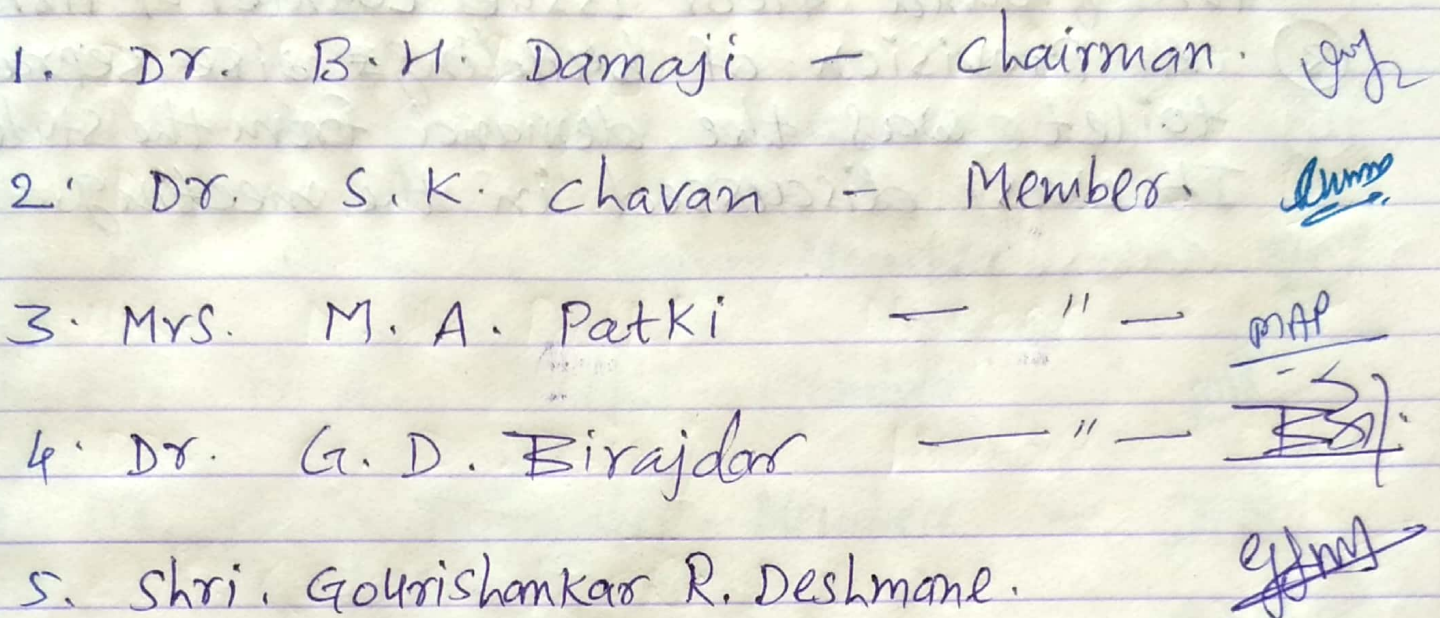 1. Dr. B.H. Damaji - Chairman.
2. Dr. S.K. Chavan - Member.
3. Mrs. M.A. Patki - " - MAP
4. Dr. G.D. Birajdar - " -
5. Shri. Gourishankar R. Deshmane.